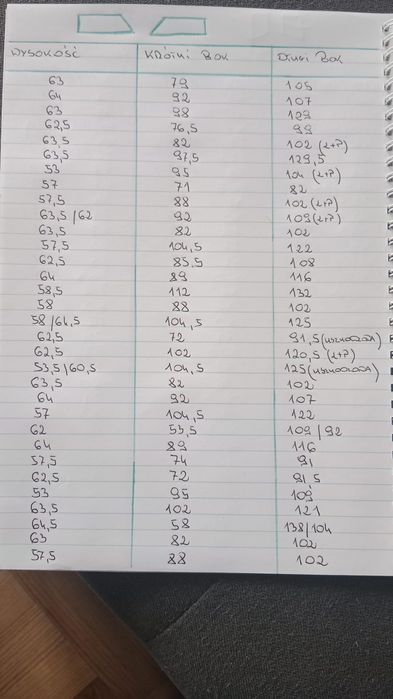 WYSOKOŚĆ KRÓTKI BOK DŁUGI BOK
63 79 105
64 92 107
63 98 129
62,5 76,5 99
63,5 82 102 (L+P)
63,5 97,5 129,5
53 95 104 (L+P)
57 71 82
57,5 88 102 (L+P)
63,5/62 92 109 (L+P)
63,5 82 102
57,5 104,5 122
62,5 85,5 108
64 89 116
58,5 112 132
58 88 102
58/64,5 104,5 125
62,5 72 91,5
62,5 102 120,5 (L+P)
53,5/60,5 104,5 125
63,5 82 102
64 92 107
57 104,5 122
62 53,5 109/92
64 89 116
57,5 74 91
62,5 72 91,5
53 95 109
63,5 102 121
64,5 58 138/104
63 82 102
57,5 88 102